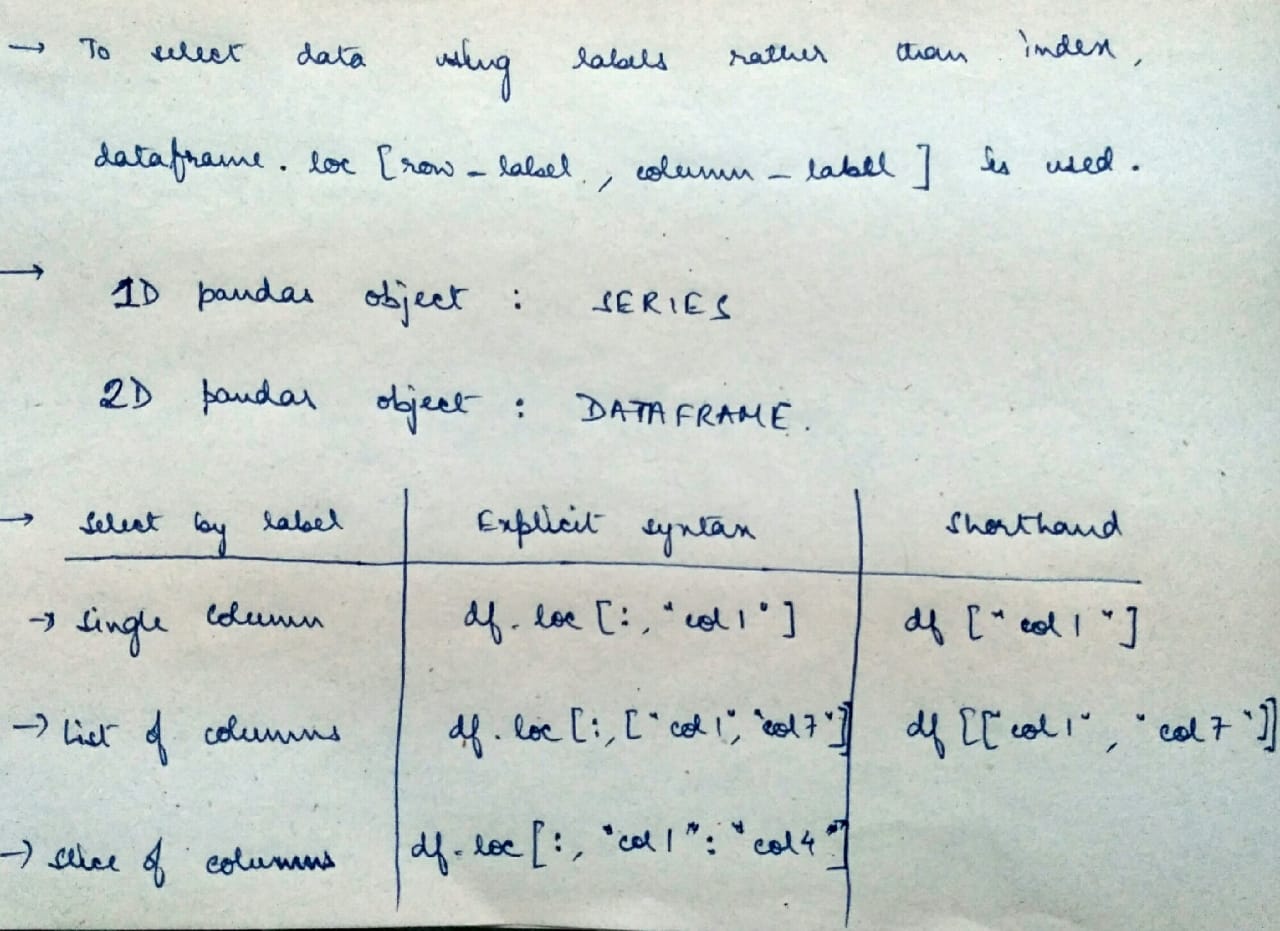 → To select data using labels rather than index,
dataframe. loc [row_label, column_label] is used.
→ 1D pandas object : SERIES
2D pandas object : DATAFRAME.
→ Select by label Explicit syntax Shorthand
→ Single column df. loc [:, "col 1"] df ["col 1"]
→ List of columns df. loc [:, ["col 1", "col 7"]] df [["col 1", "col 7"]]
→ slice of columns df. loc [:, "col 1": "col 4"]